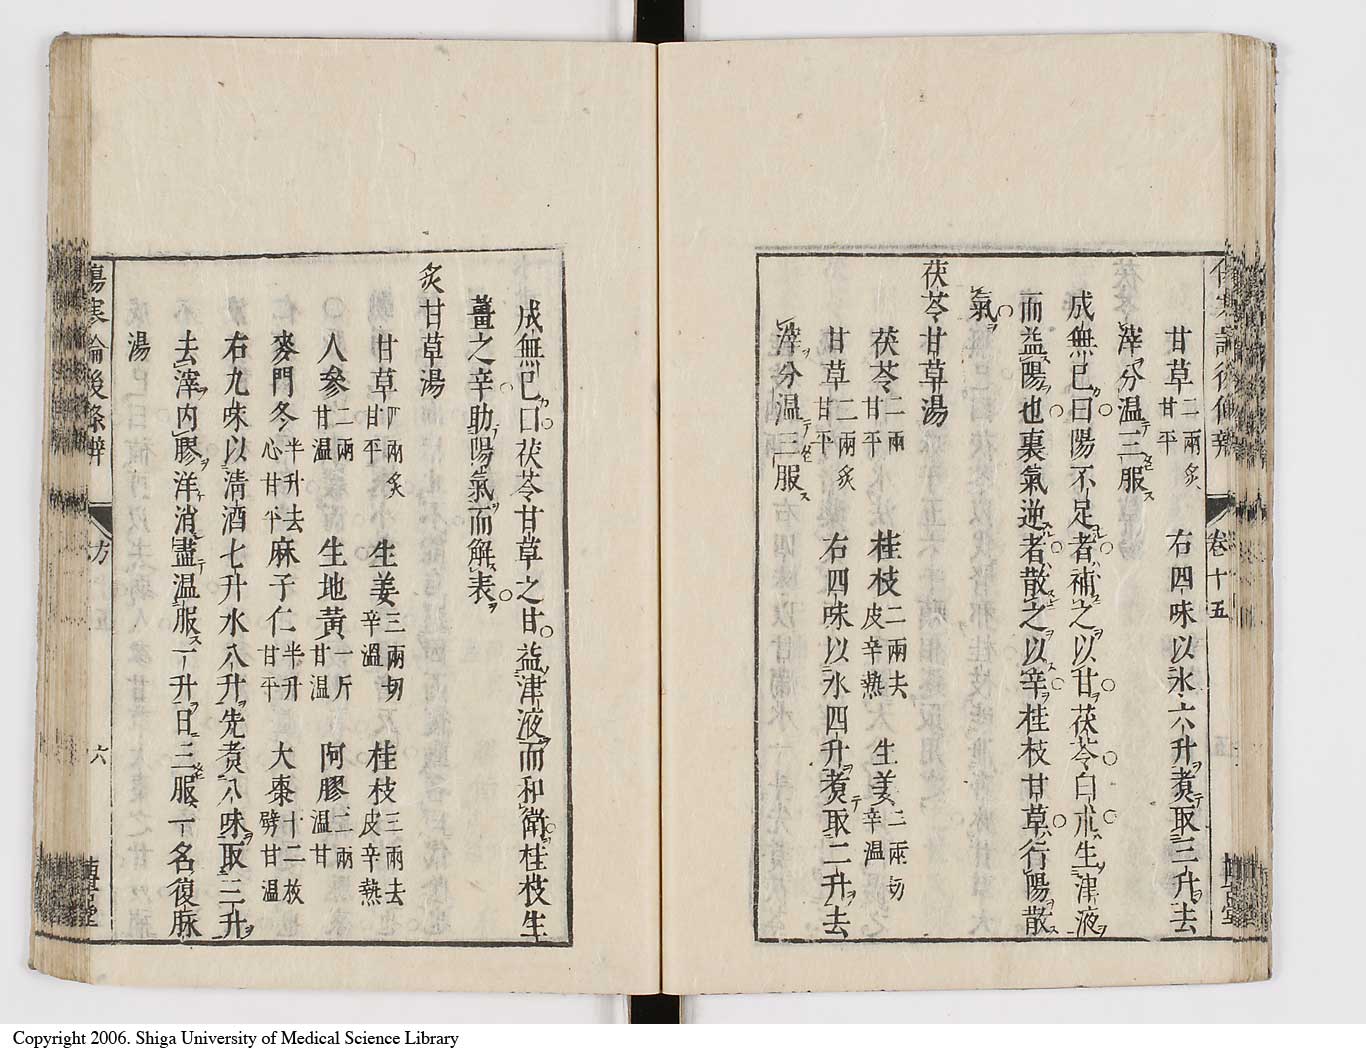 甘草二兩炙甘平 右四味以水六升煮取三升去
滓分温三服
成無已曰陽不足者補之以甘茯苓白朮生津液
而益陽也裏氣逆者散之以辛桂枝甘草行陽散
氣
茯苓甘草湯
茯苓二兩甘平 桂枝二兩去皮辛熱 生姜三兩切辛温
甘草二兩炙甘平 右四味以水四升煮取二升去
滓分温三服
卷十五
成無已曰茯苓甘草之甘益津液而和衛桂枝生
薑之辛助陽氣而解表
炙甘草湯
甘草四兩炙甘平 生姜三兩切辛温 桂枝三兩去皮辛熱
人參二兩甘温 生地黃一斤甘温 阿膠二兩温甘
麥門冬半升去心甘平 麻子仁半升甘平 大棗十二枚劈甘温
右九味以清酒七升水八升先煮八味取三升
去滓内膠洋消盡温服一升日三服一名復麻
湯
傷寒論後條辨 方 六
Copyright 2006. Shiga University of Medical Science Library